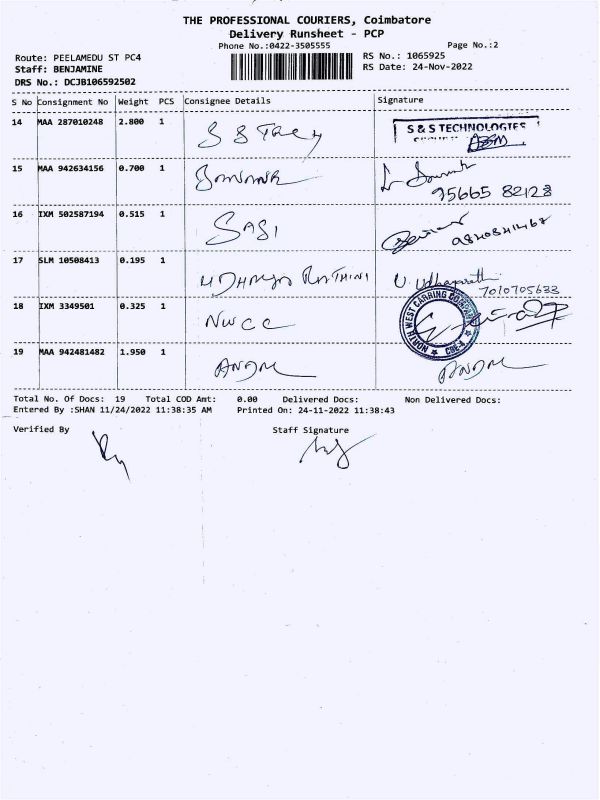 THE PROFESSIONAL COURIERS, Coimbatore
Delivery Runsheet - PCP
Phone No.:0422-3505555
Page No.:2
Route: PEELAMEDU ST PC4
RS No.: 1065925
Staff: BENJAMINE
RS Date: 24-Nov-2022
DRS No.: DCJB106592502
S No Consignment No Weight PCS Consignee Details Signature
14 MAA 287010248 2.800 1 S S Tecy
S & S TECHNOLOGIES
15 MAA 942634156 0.700 1
95665 82128
16 IXM 502587194 0.515 1 SASI
17 SLM 10508413 0.195 1 UDHAYA RATHINI
7010705633
18 IXM 3349501 0.325 1 NWCC
NORTH WEST CARRING COMPANY CBE-4
19 MAA 942481482 1.950 1 ANDM ANDM
Total No. Of Docs: 19 Total COD Amt: 0.00 Delivered Docs: Non Delivered Docs:
Entered By :SHAN 11/24/2022 11:38:35 AM Printed On: 24-11-2022 11:38:43
Verified By Staff Signature